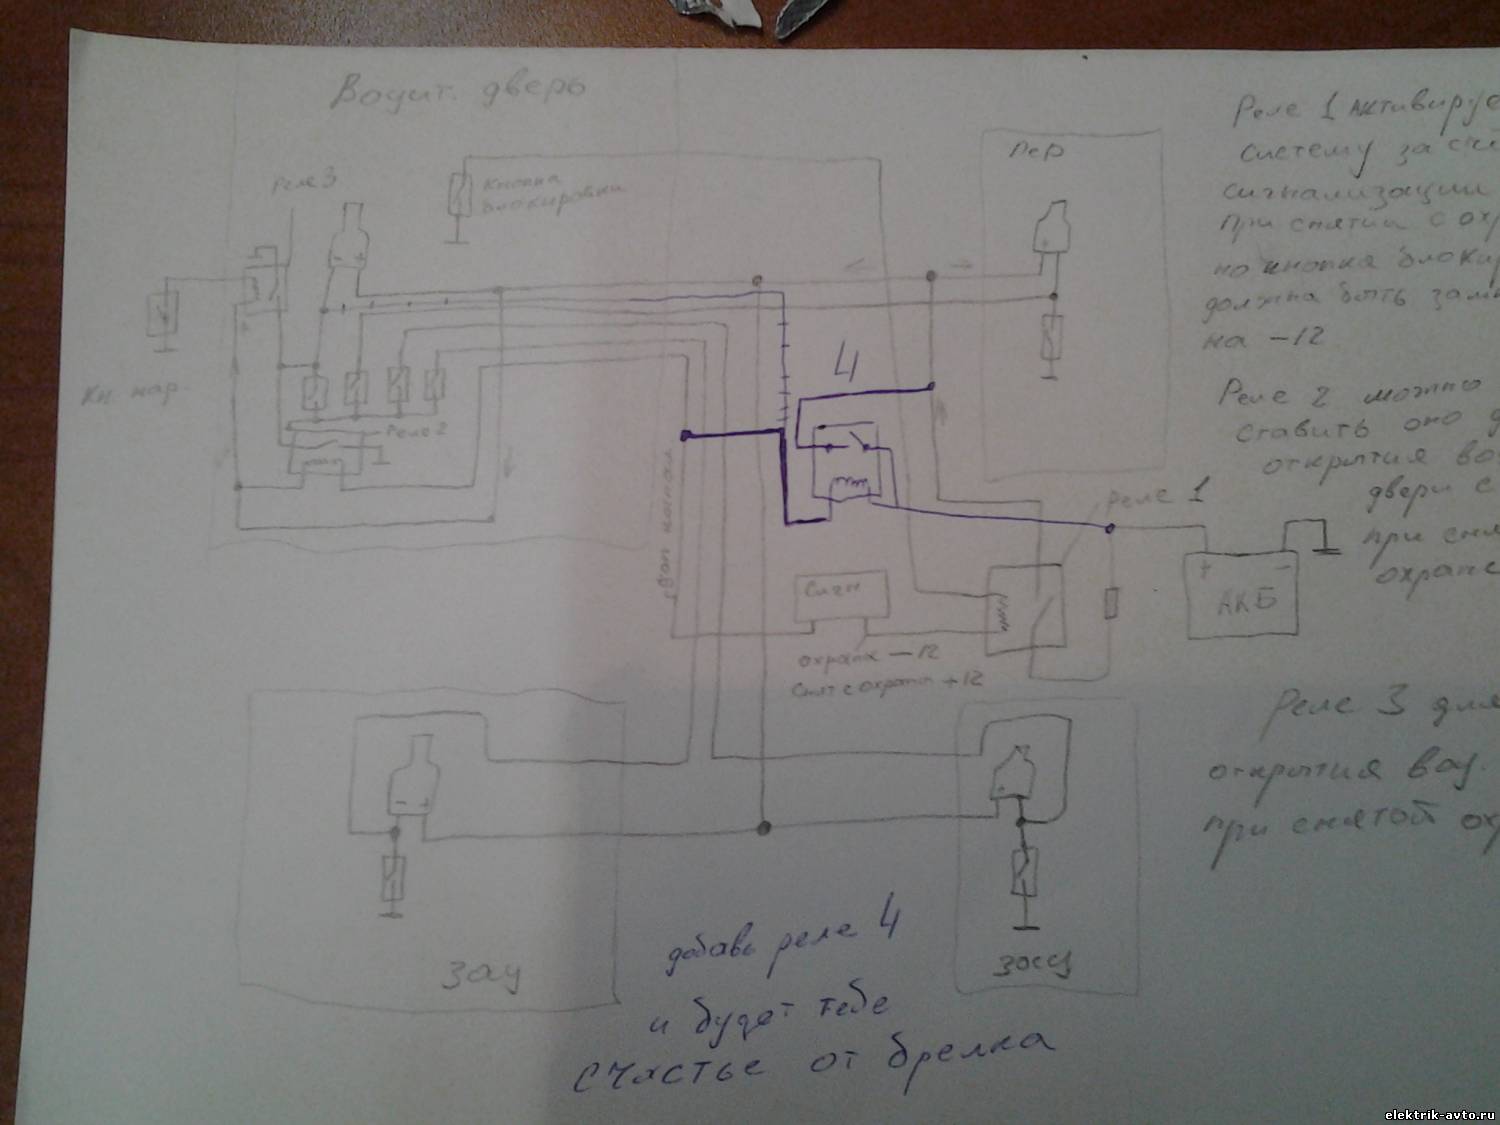 Водит. дверь
Реле 3
Кнопка
блокировки
пер
Кн нар.
Реле 2
4
доп канал
Сигн
охрана -12
Снят с охраны +12
Реле 1
+ -
АКБ
Реле 1 активируе
систему за счё
сигнализации
При снятии с охр
но кнопка блоки
должна быть замк
на -12
Реле 2 можно
ставить оно д
открытия во
двери с
при сня
охране
Реле 3 для
открытия вод.
при снятой ох
зад
добавь реле 4
и будет тебе
счастье от брелка
elektrik-avto.ru